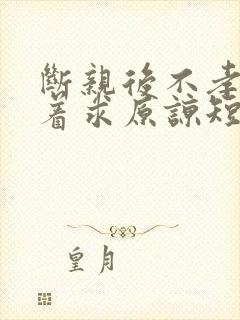 斷親後不孝
着求原諒短
皇月